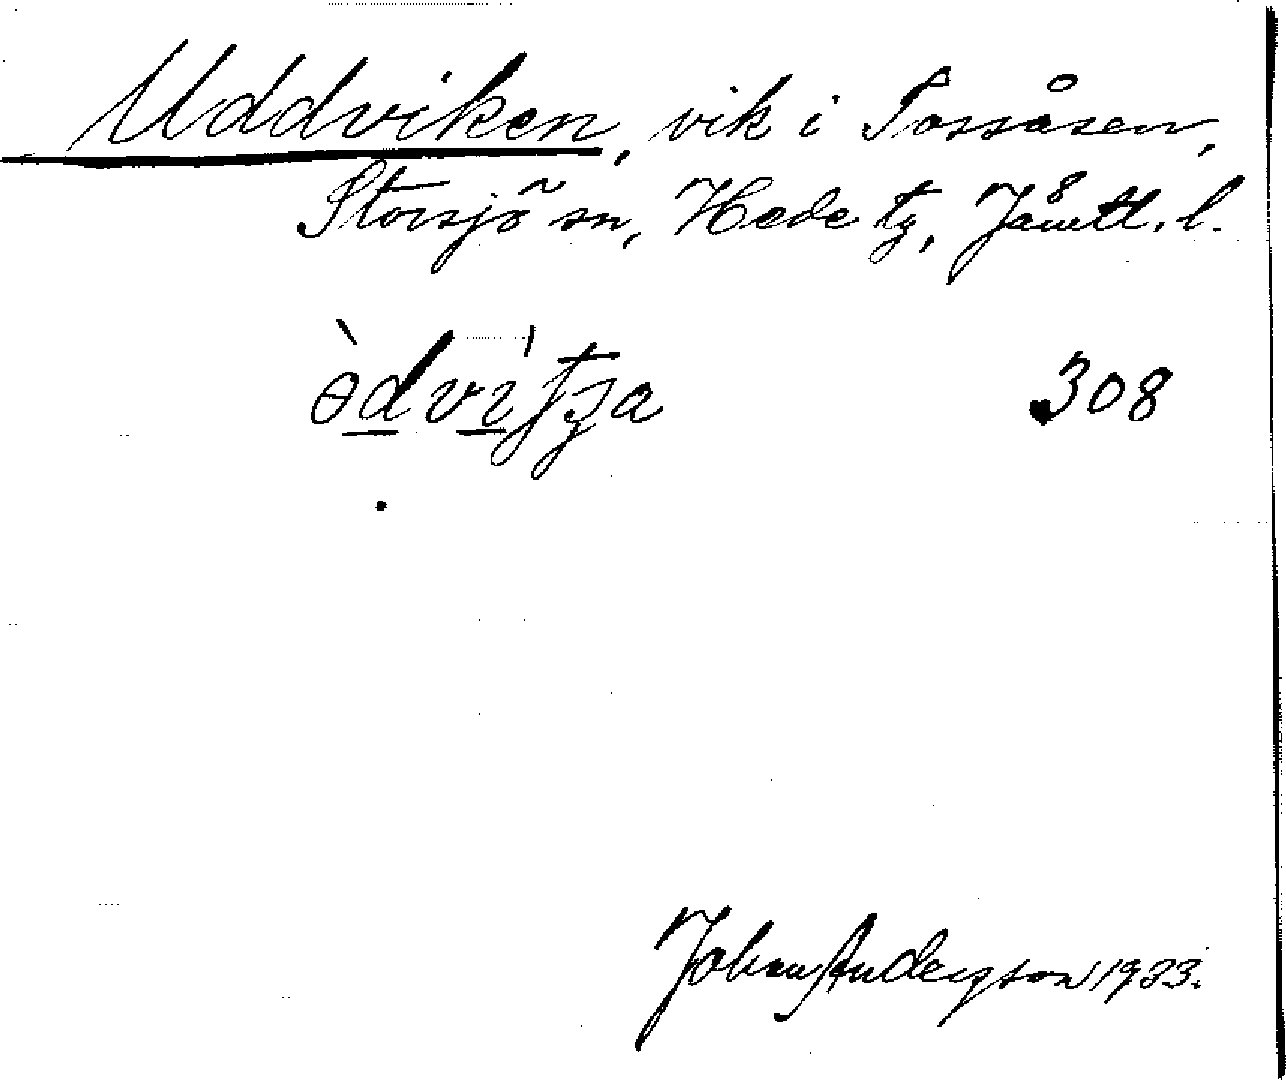 Uddviken, vik i Tossåsen,
Storsjö sn, Hede tg, Jämtl. l.
308
Johan Anderson 1933.